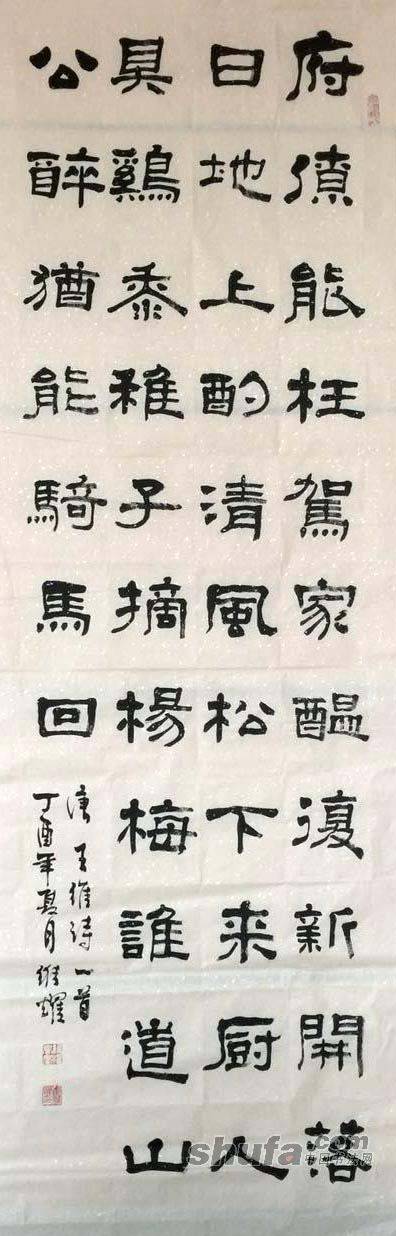 府僚能枉駕家醞復新開落
日地上酌清風松下来厨人
具鷄黍稚子摘楊梅誰道山
公醉猶能騎馬回
唐王維詩一首
丁酉年夏月維耀
shufa.com
中国书法网